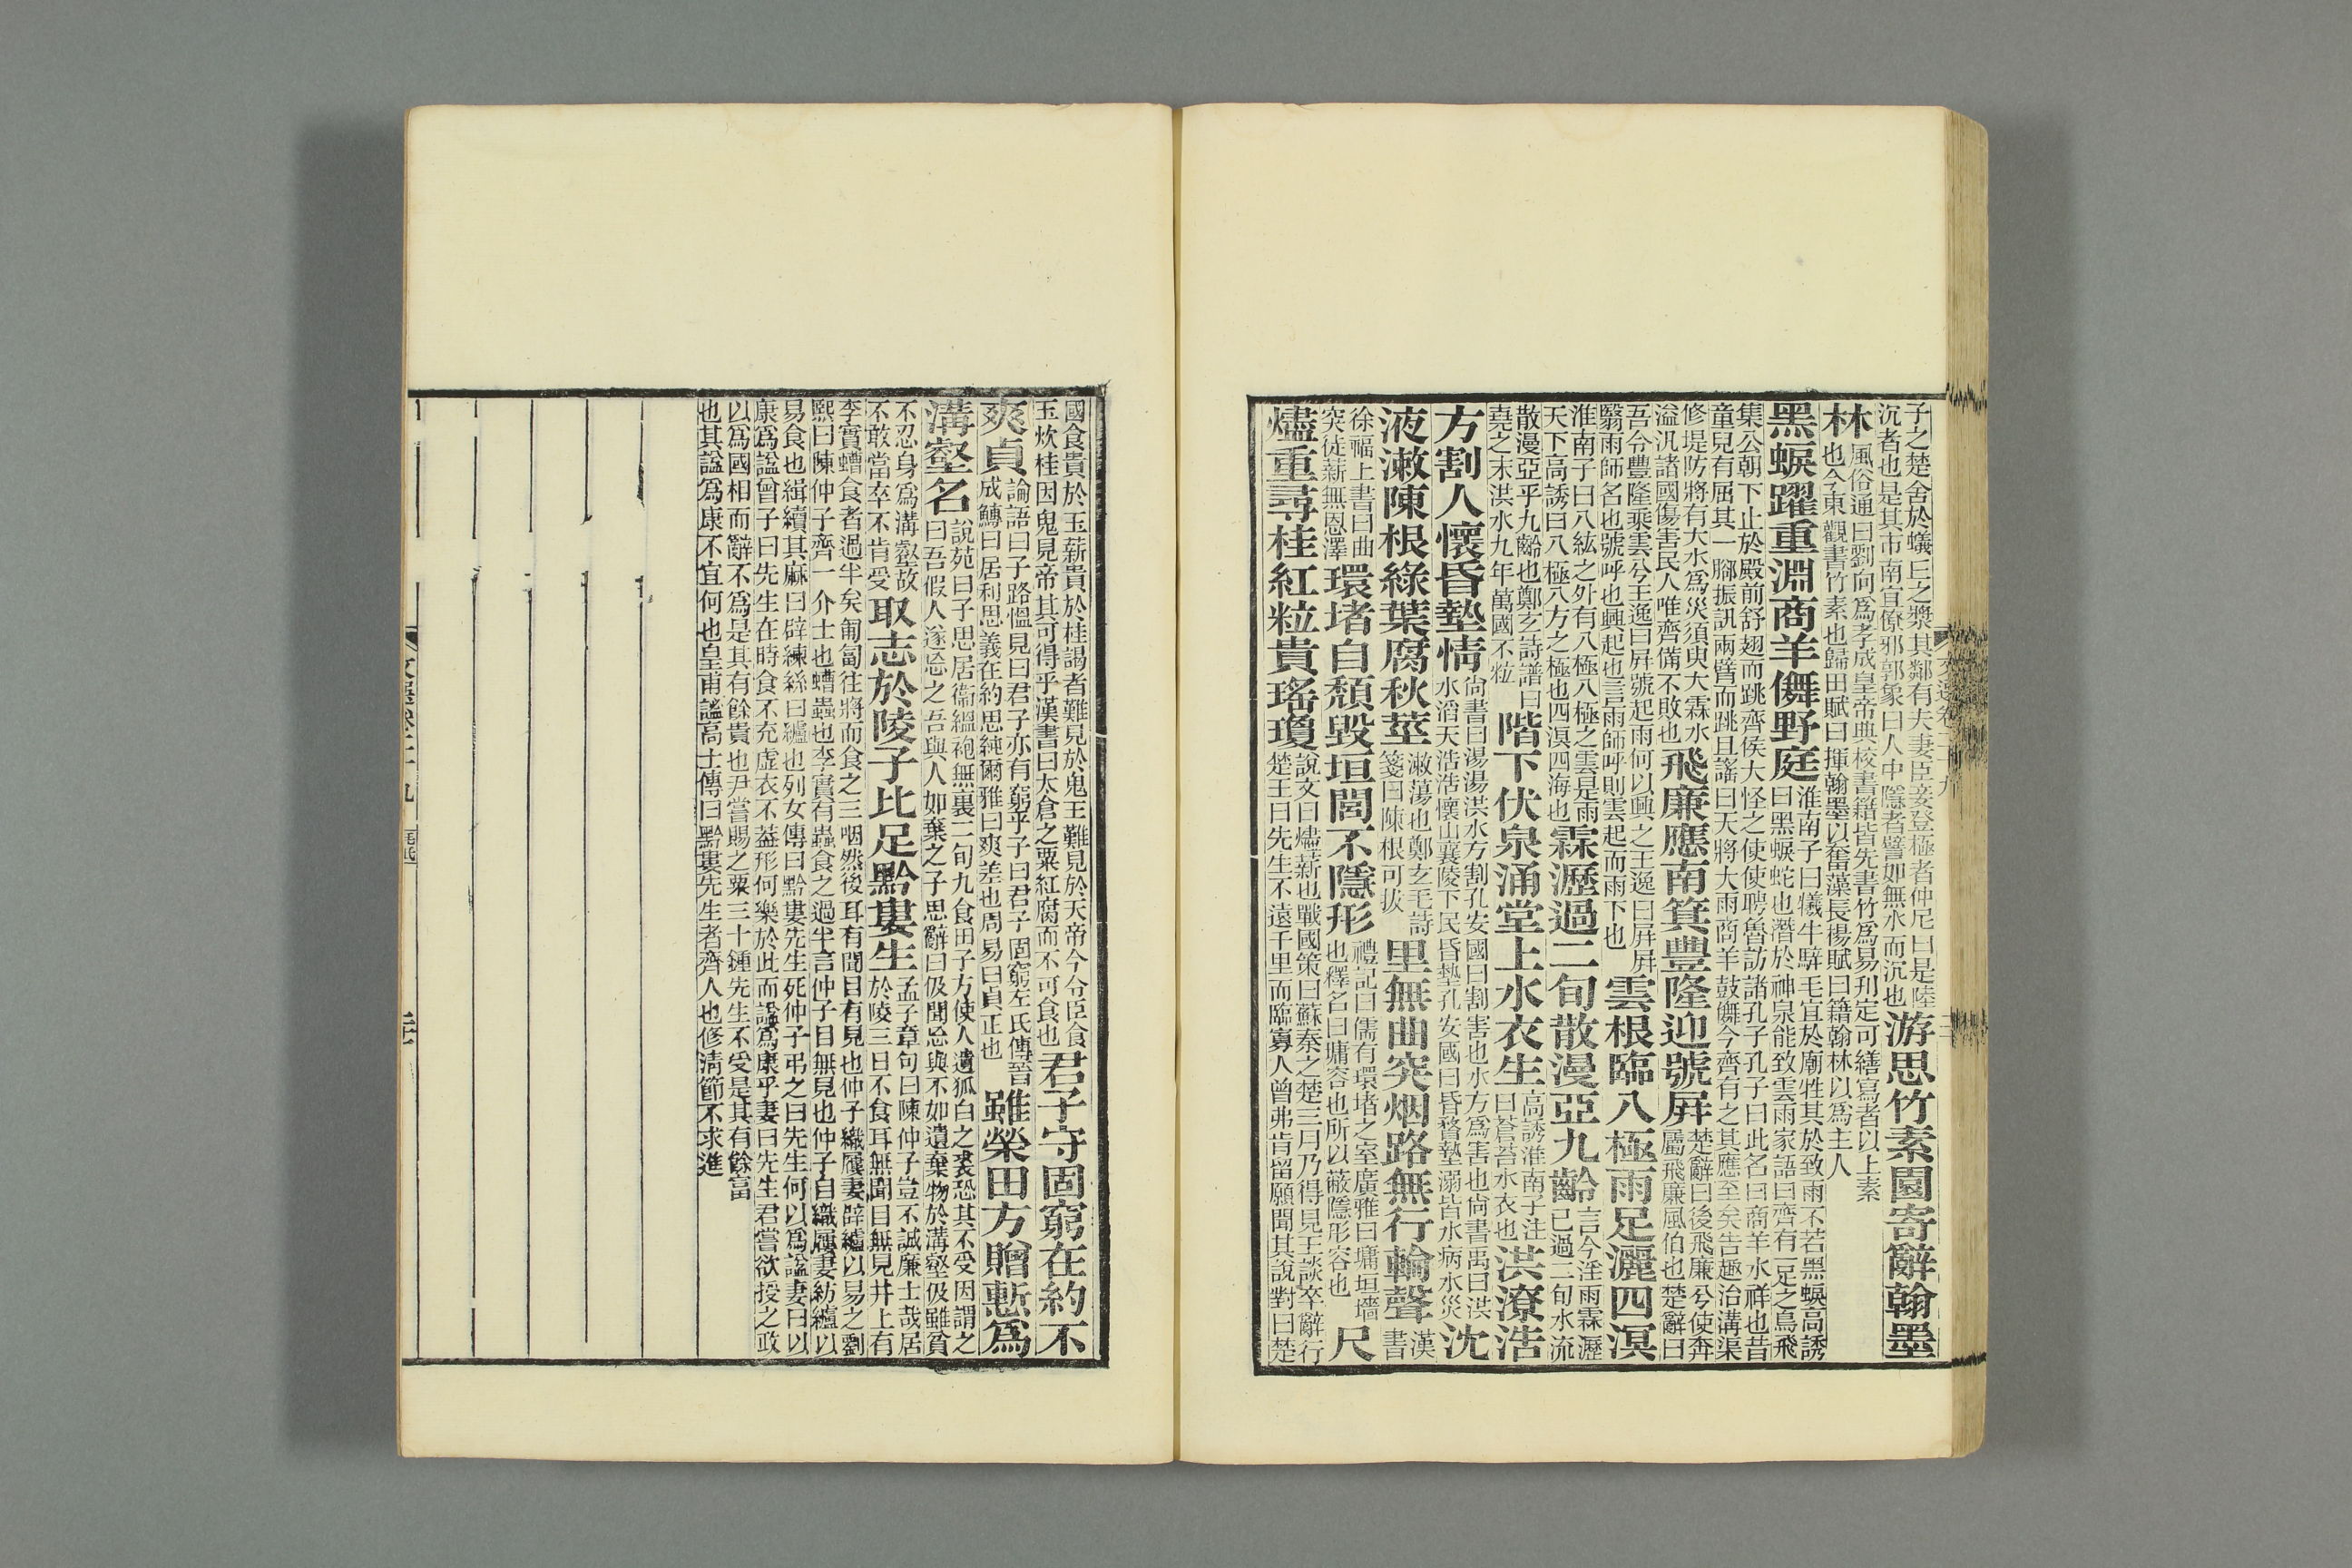 子之楚舍於蟻丘之漿其鄰有夫妻臣妾登極者仲尼曰是陸
沉者也是其市南宜僚邪郭象曰人中隱者譬如無水而沉也
游思竹素園寄辭翰墨
林
風俗通曰劉向爲孝成皇帝典校書籍皆先書竹爲易刋定可繕寫者以上素
也今東觀書竹素也歸田賦曰揮翰墨以奮藻長楊賦曰籍翰林以爲主人
黑蜧躍重淵商羊儛野庭
淮南子曰犧牛騂毛宜於廟牲其於致雨不若黑蜧高誘
曰黑蜧蛇也潛於神泉能致雲雨家語曰齊有一足之鳥飛
集公朝下止於殿前舒翅而跳齊侯大怪之使使聘魯訪諸孔子孔子曰此名曰商羊水祥也昔
童兒有屈其一脚振訊兩臂而跳且謠曰天將大雨商羊鼓儛今齊有之其應至矣告趣治溝渠
修堤防將有大水爲災須臾大霖水
溢汎諸國傷害民人唯齊備不敗也
飛廉應南箕豐隆迎號屏
楚辭曰後飛廉兮使奔
屬飛廉風伯也楚辭曰
吾令豐隆乘雲兮王逸曰屏號起雨何以興之王逸曰屏屏
翳雨師名也號呼也興起也言雨師呼則雲起而雨下也
雲根臨八極雨足灑四溟
淮南子曰八紘之外有八極八極之雲是雨
天下高誘曰八極八方之極也四溟四海也
霖瀝過二旬散漫亞九齡
言今淫雨霖瀝
已過二旬水流
散漫亞乎九齡也鄭玄詩譜曰
堯之末洪水九年萬國不粒
階下伏泉涌堂上水衣生
高誘淮南子注
曰蒼苔水衣也
洪潦浩
方割人懷昏墊情
尚書曰湯湯洪水方割孔安國曰割害也水方爲害也尚書禹曰洪
水滔天浩浩懷山襄陵下民昏墊孔安國曰昏瞀墊溺皆水病水災
沈
液漱陳根綠葉腐秋莖
漱蕩也鄭玄毛詩
箋曰陳根可拔
里無曲突烟路無行輪聲
漢
書
徐福上書曰曲
突徙薪無恩澤
環堵自頹毀垣閭不隱形
禮記曰儒有環堵之室廣雅曰墉垣墻
也釋名曰墉容也所以蔽隱形容也
尺
燼重尋桂紅粒貴瑤瓊
說文曰燼薪也戰國策曰蘇秦之楚三月乃得見王談卒辭行
楚王曰先生不遠千里而臨寡人曾弗肯留願聞其說對曰楚
國食貴於玉薪貴於桂謁者難見於鬼王難見於天帝今令臣食
玉炊桂因鬼見帝其可得乎漢書曰太倉之粟紅腐而不可食也
君子守固窮在約不
爽貞
論語曰子路慍見曰君子亦有窮乎子曰君子固窮左氏傳晉
成鱄曰居利思義在約思純爾雅曰爽差也周易曰貞正也
雖榮田方贈慙爲
溝壑名
說苑曰子思居衞縕袍無裏二旬九食田子方使人遺狐白之裘恐其不受因謂之
曰吾假人遂忘之吾與人如棄之子思辭曰伋聞忘與不如遺棄物於溝壑伋雖貧
不忍身爲溝壑故
不敢當卒不肯受
取志於陵子比足黔婁生
孟子章句曰陳仲子豈不誠廉士哉居
於陵三日不食耳無聞目無見井上有
李實螬食者過半矣匍匐往將而食之三咽然後耳有聞目有見也仲子織屨妻辟纑以易之劉
熙曰陳仲子齊一介士也螬蟲也李實有蟲食之過半言仲子目無見也仲子自織屨妻紡纑以
易食也緝續其麻曰辟練絲曰纑也列女傳曰黔婁先生死仲子弔之曰先生何以爲謚妻曰以
康爲謚曾子曰先生在時食不充虛衣不葢形何樂於此而謚爲康乎妻曰先生君嘗欲授之政
以爲國相而辭不爲是其有餘貴也尹嘗賜之粟三十鍾先生不受是其有餘富
也其謚爲康不宜何也皇甫謐高士傳曰黔婁先生者齊人也修清節不求進